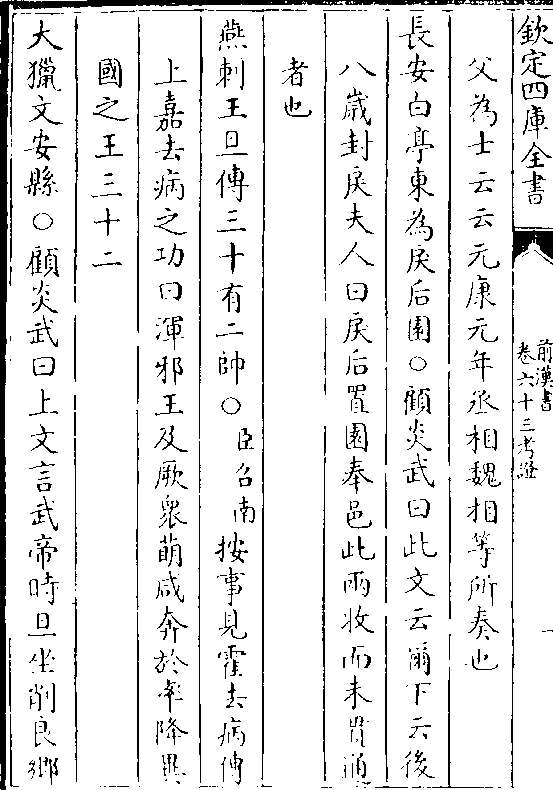 欽定四庫全書
前漢書
卷六十三考證
一
父為士云云元康元年丞相魏相等所奏也
長安白亭東為戾后園○顧炎武曰此文云爾下云後
八歲封戾夫人曰戾后置園奉邑此兩收而未貫通
者也
燕刺王旦傳三十有二帥○臣召南按事見霍去病傳
上嘉去病之功曰渾邪王及厥衆萌咸奔於率降異
國之王三十二
大獵文安縣○顧炎武曰上文言武帝時旦坐削良鄉